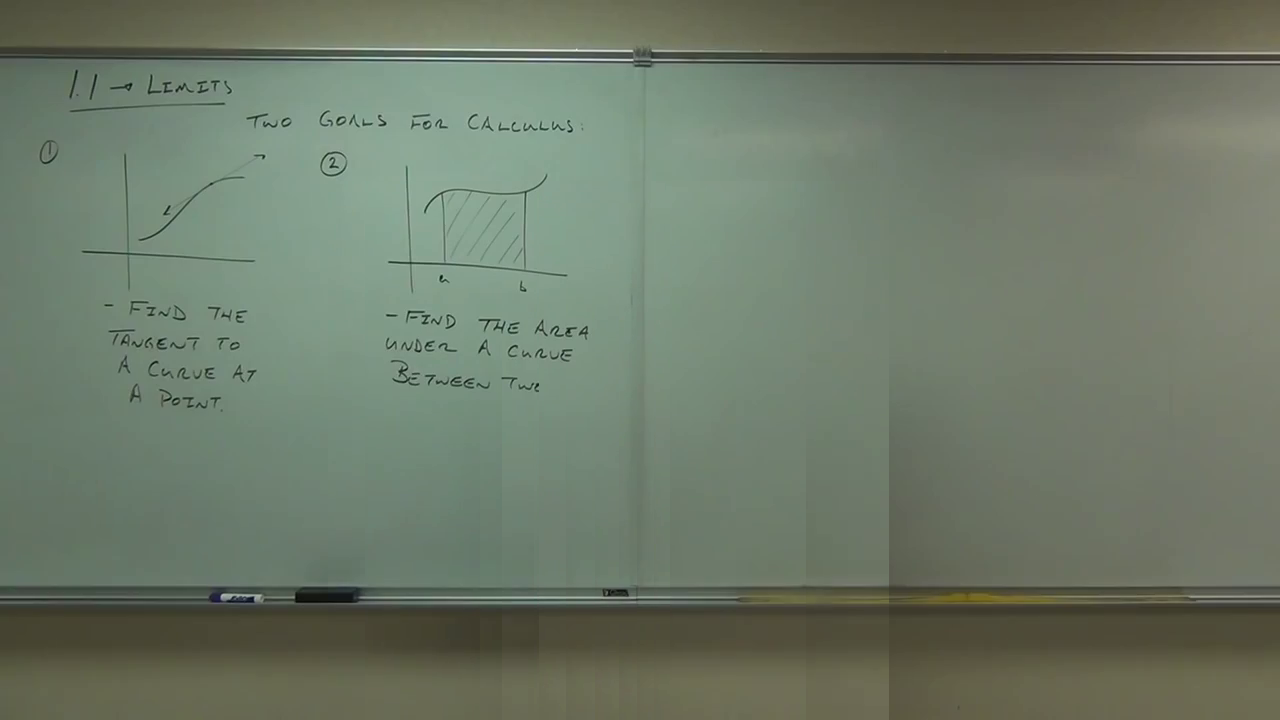 1.1 → LIMITS
TWO GOALS FOR CALCULUS:
①
- FIND THE
TANGENT TO
A CURVE AT
A POINT.
②
a b
- FIND THE AREA
UNDER A CURVE
BETWEEN TWO